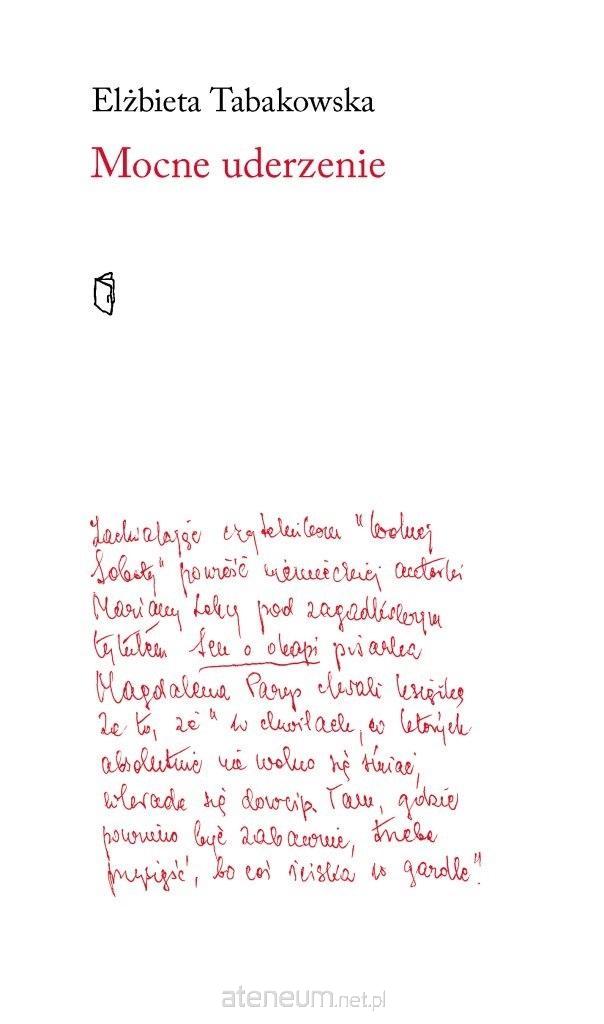 Elżbieta Tabakowska
Mocne uderzenie
Zachwalając czytelnikom "Wolnej
Soboty" powieść niemieckiej autorki
Mariany Leky pod zagadkowym
tytułem Sen o okapi pisarka
Magdalena Parys chwali książkę
za to, że "w chwilach, w których
absolutnie nie wolno się śmiać,
wkrada się dowcip. Tam, gdzie
powinno być zabawnie, trzeba
przysiąść, bo coś ściska w gardle".
ateneum.net.pl